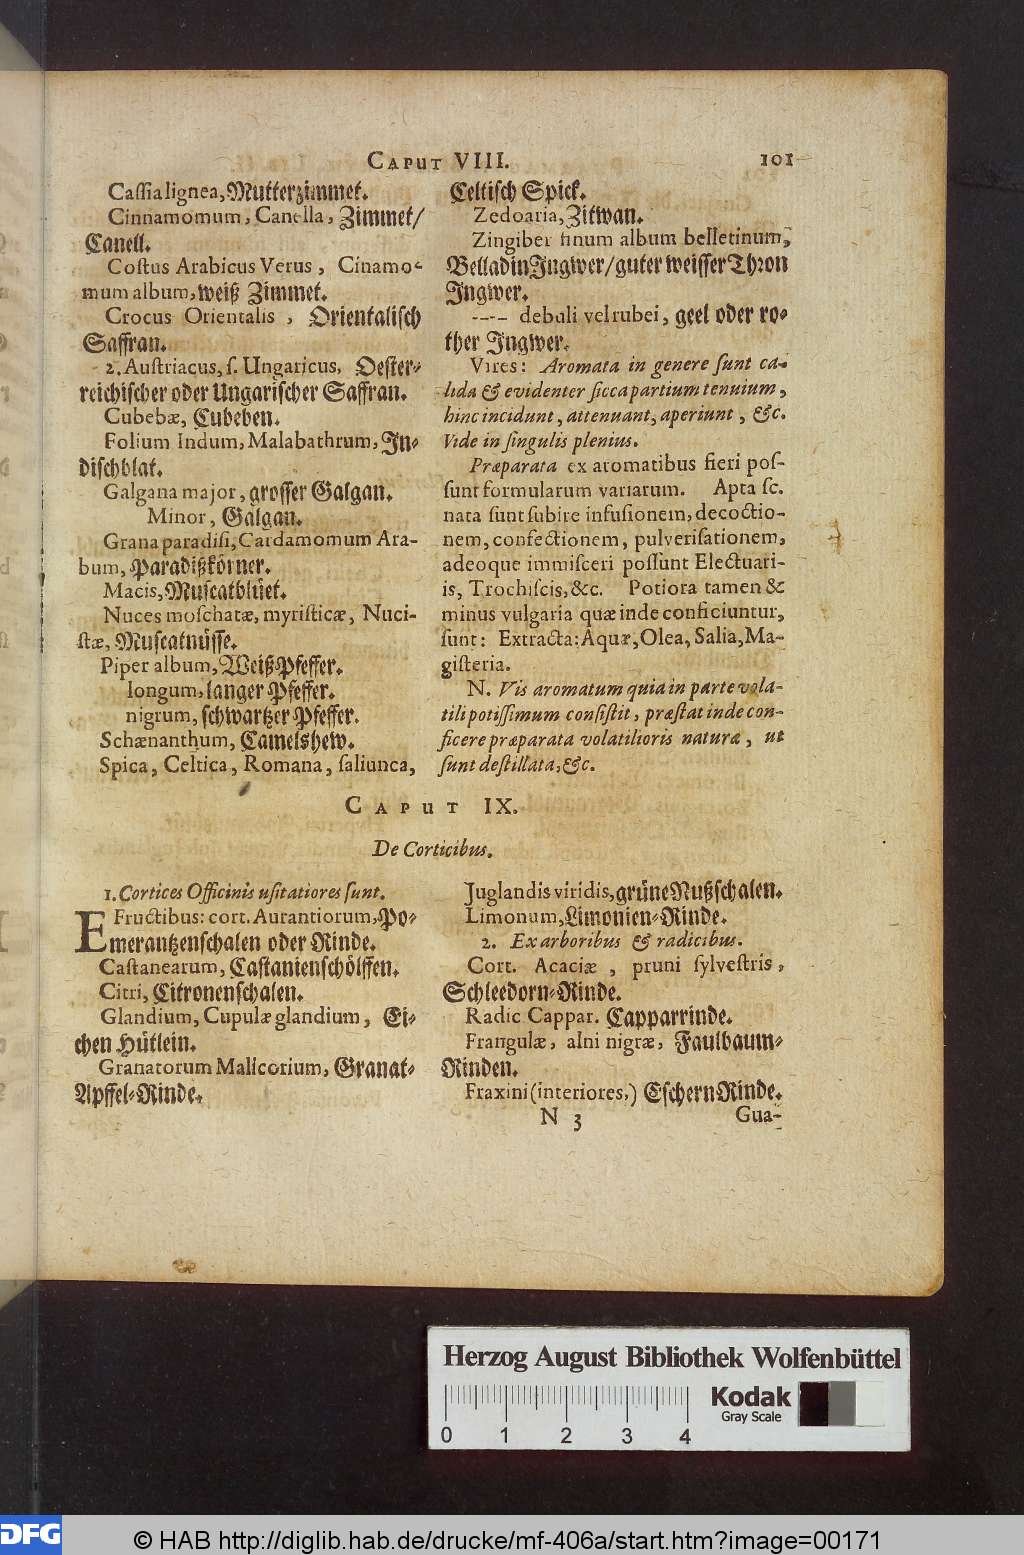 CAPUT VIII. 101
Caſſia lignea, Mutterzimmet.
Cinnamomum, Canella, Zimmet/
Canell.
Coſtus Arabicus Verus, Cinamo-
mum album, weiß Zimmet.
Crocus Orientalis, Orientaliſch
Saffran.
2. Auſtriacus, ſ. Ungaricus, Oeſter-
reichiſcher oder Ungariſcher Saffran.
Cubebæ, Cubeben.
Folium Indum, Malabathrum, In-
diſchblat.
Galgana major, groſſer Galgan.
Minor, Galgan.
Grana paradiſi, Cardamomum Ara-
bum, Paradißkörner.
Macis, Muſcatblüet.
Nuces moſchatæ, myriſticæ, Nuci-
ſtæ, Muſcatnüſſe.
Piper album, Weiß Pfeffer.
longum, langer Pfeffer.
nigrum, ſchwartzer Pfeffer.
Schænanthum, Camelshew.
Spica, Celtica, Romana, ſaliunca,
Celtiſch Spick.
Zedoaria, Zitwan.
Zingiber finum album belletinum,
Belladin Ingwer/ guter weiſſer Thron
Ingwer.
---- debuli vel rubei, geel oder ro-
ther Ingwer.
Vires: Aromata in genere ſunt ca-
lida & evidenter ſicca partium tenuium,
hinc incidunt, attenuant, aperiunt, &c.
Vide in ſingulis plenius.
Præparata ex aromatibus fieri poſ-
ſunt formularum variarum. Apta ſc.
nata ſunt ſubire infuſionem, decoctio-
nem, confectionem, pulveriſationem,
adeoque immiſceri poſſunt Electuari-
is, Trochiſcis, &c. Potiora tamen &
minus vulgaria quæ inde conficiuntur,
ſunt: Extracta: Aquæ, Olea, Salia, Ma-
giſteria.
N. Vis aromatum quia in parte vola-
tili potiſſimum conſiſtit, præſtat inde con-
ficere præparata volatilioris naturæ, ut
ſunt deſtillata, &c.
CAPUT IX.
De Corticibus.
1. Cortices Officinis uſitatiores ſunt.
E Fructibus: cort. Aurantiorum, Po-
merantzenſchalen oder Rinde.
Caſtanearum, Caſtanienſchölffen.
Citri, Citronenſchalen.
Glandium, Cupulæ glandium, Ei-
chen Hütlein.
Granatorum Malicorium, Granat-
Apffel-Rinde.
Juglandis viridis, grüne Nußſchalen.
Limonum, Limonien-Rinde.
2. Ex arboribus & radicibus.
Cort. Acaciæ, pruni ſylveſtris,
Schleedorn-Rinde.
Radic Cappar. Capparrinde.
Frangulæ, alni nigræ, Faulbaum-
Rinden.
Fraxini (interiores,) Eſchern Rinde.
N 3 Gua-
Herzog August Bibliothek Wolfenbüttel
Kodak
Gray Scale
0 1 2 3 4
DFG © HAB http://diglib.hab.de/drucke/mf-406a/start.htm?image=00171